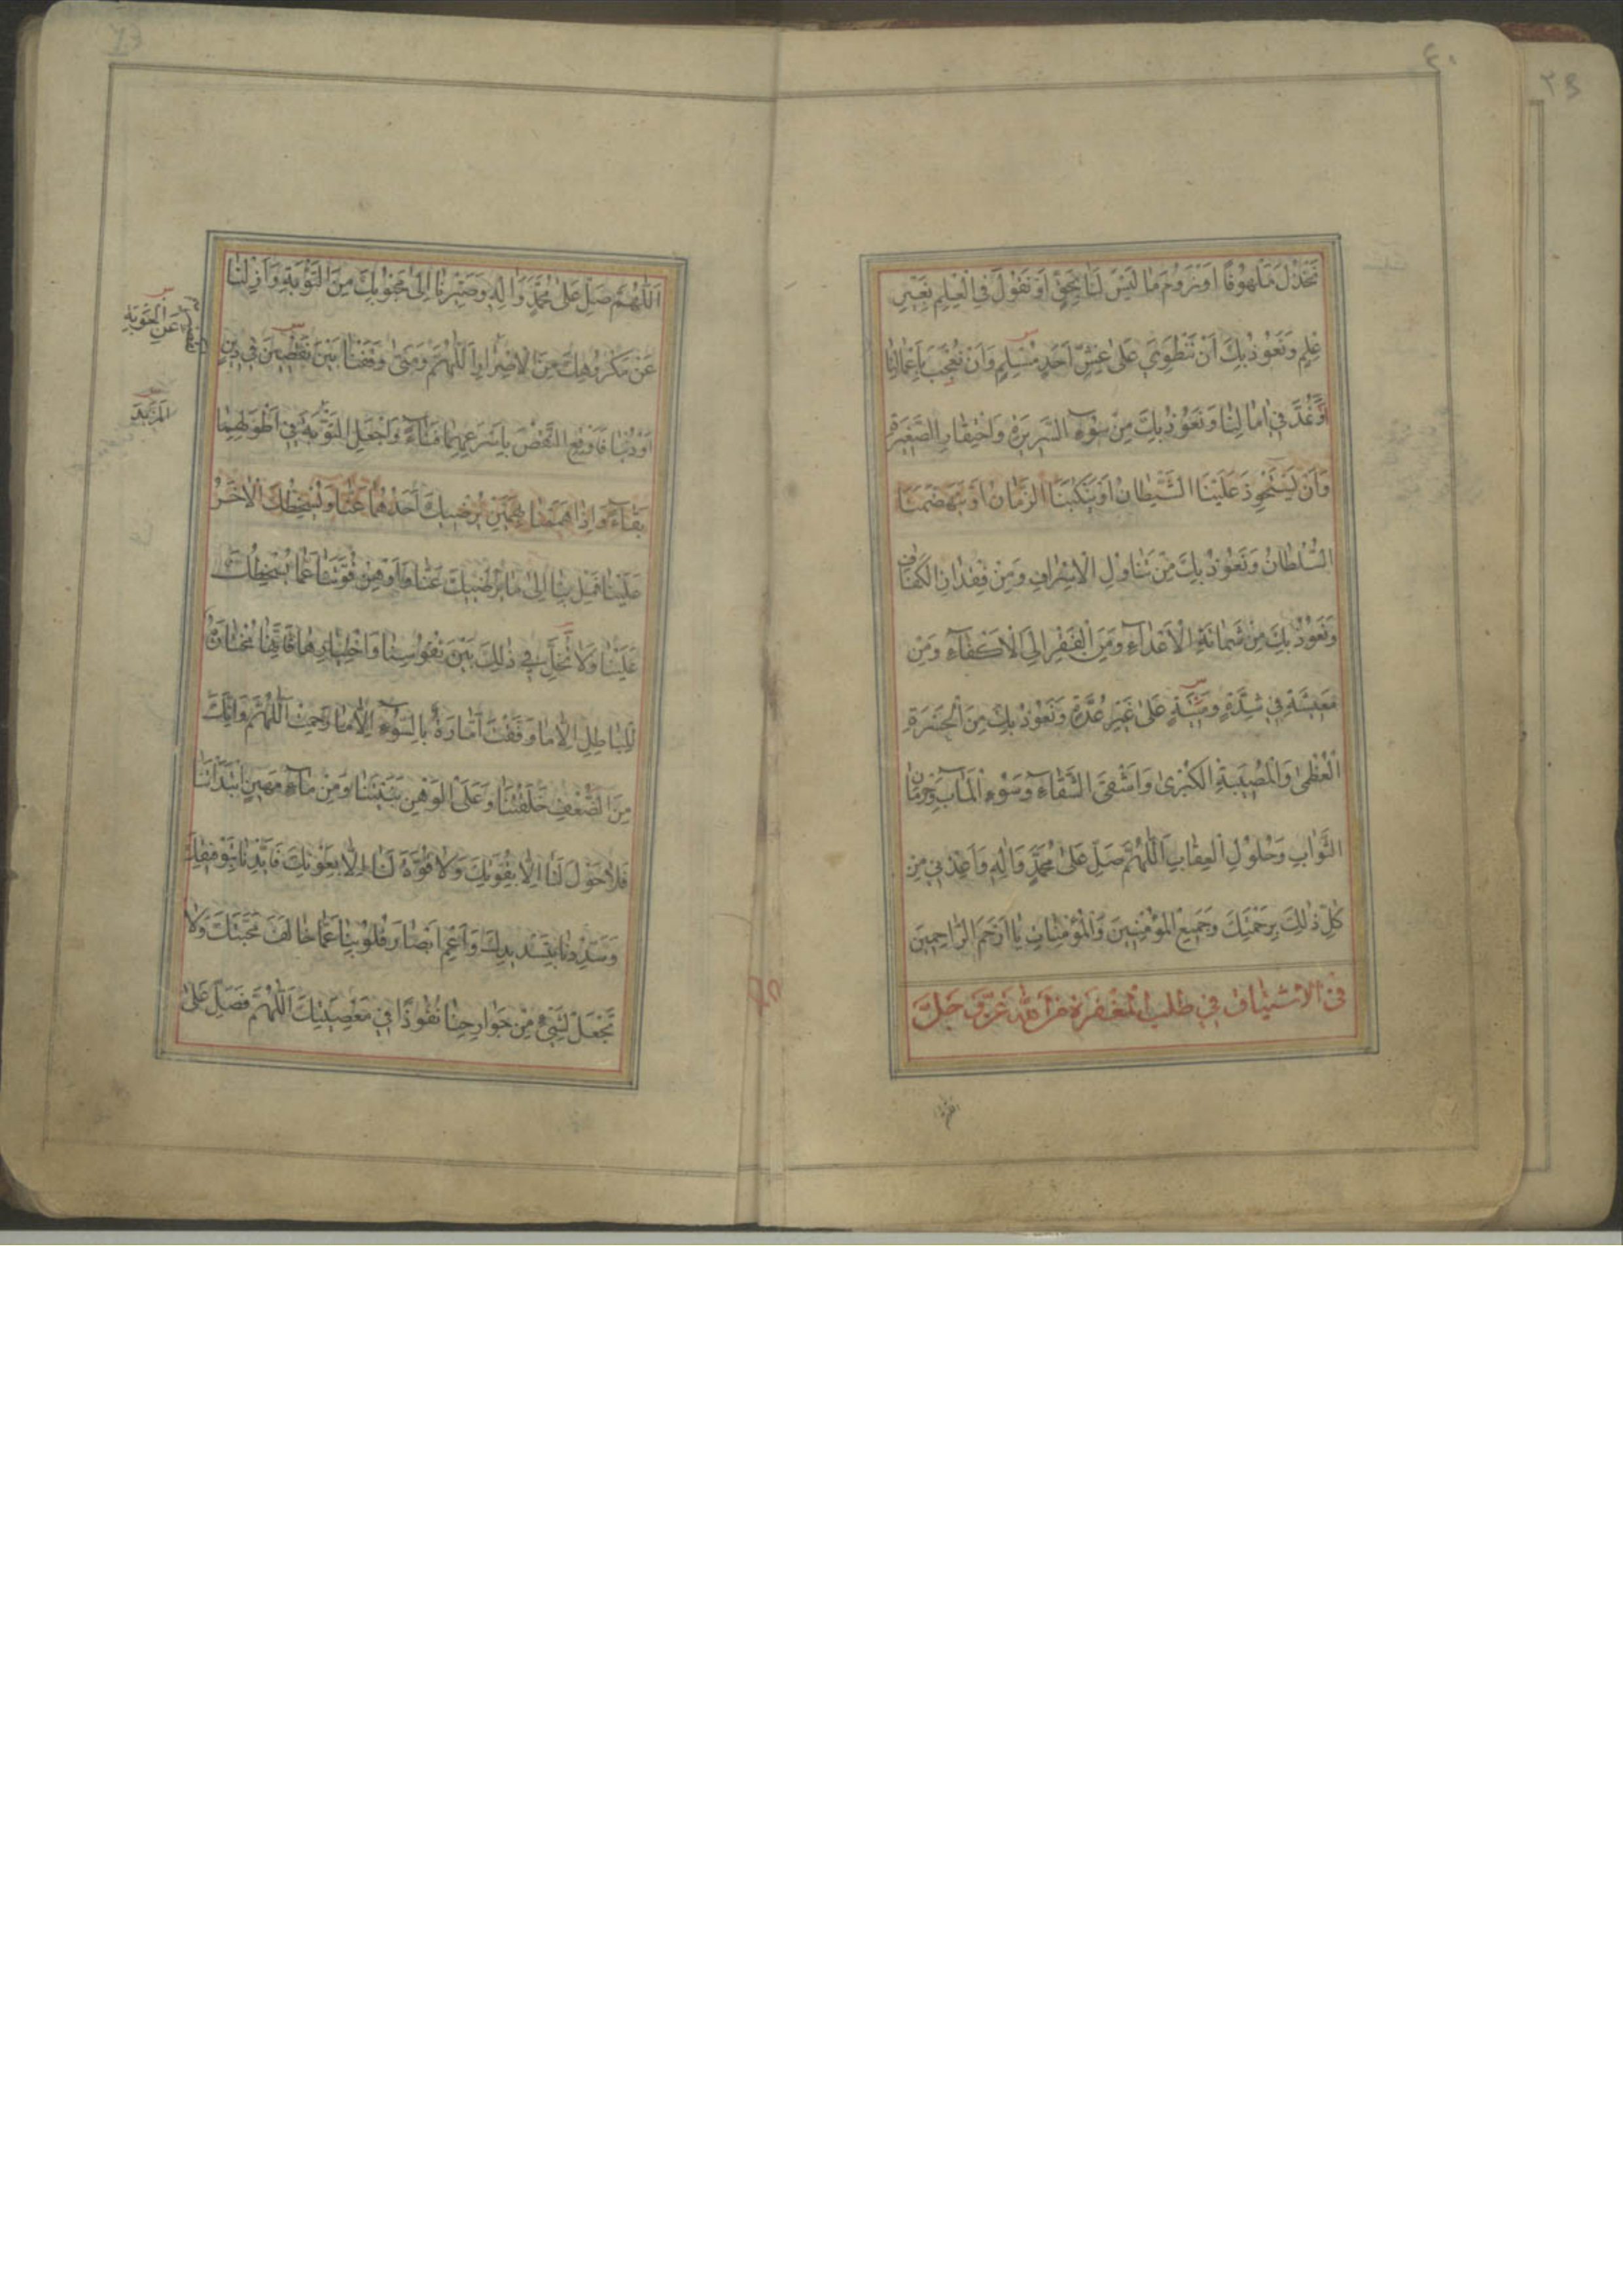 نَخْذُلَ مَلْهُوفًا اَوْ نَرُومَ مَا لَيْسَ لَنَا بِحَقٍّ اَوْ نَقُولَ فِي الْعِلْمِ بِغَيْرِ
عِلْمٍ وَنَعُوذُ بِكَ اَنْ نَنْطَوِيَ عَلٰى غِشِّ اَحَدٍ مُسْلِمٍ وَاَنْ نُعْجَبَ بِاَعْمَالِنَا
وَنَمُدَّ فِي اٰمَالِنَا وَنَعُوذُ بِكَ مِنْ سُوۤءِ السَّرِيرَةِ وَاحْتِقَارِ الصَّغِيرَةِ
وَاَنْ يَسْتَحْوِذَ عَلَيْنَا الشَّيْطَانُ اَوْ يَنْكُبَنَا الزَّمَانُ اَوْ يَتَهَضَّمَنَا
السُّلْطَانُ وَنَعُوذُ بِكَ مِنْ تَنَاوُلِ الْاِسْرَافِ وَمِنْ فِقْدَانِ الْكَفَافِ
وَنَعُوذُ بِكَ مِنْ شَمَاتَةِ الْاَعْدَاۤءِ وَمِنَ الْفَقْرِ اِلَى الْاَكْفَاۤءِ وَمِنْ
مَعِيشَةٍ فِي شِدَّةٍ وَمِيتَةٍ عَلٰى غَيْرِ عُدَّةٍ وَنَعُوذُ بِكَ مِنَ الْحَسْرَةِ
الْعُظْمٰى وَالْمُصِيبَةِ الْكُبْرٰى وَاَشْقَى الشَّقَاۤءِ وَسُوۤءِ الْمَاٰبِ وَحِرْمَانِ
الثَّوَابِ وَحُلُولِ الْعِقَابِ اَللّٰهُمَّ صَلِّ عَلٰى مُحَمَّدٍ وَاٰلِهِ وَاَعِذْنِي مِنْ
كُلِّ ذٰلِكَ بِرَحْمَتِكَ وَجَمِيعَ الْمُؤْمِنِينَ وَالْمُؤْمِنَاتِ يَا اَرْحَمَ الرَّاحِمِينَ
فى الاشتياق في طلب المغفرة من الله عَزَّ وَ جَلَّ
اَللّٰهُمَّ صَلِّ عَلٰى مُحَمَّدٍ وَاٰلِهِ وَصَيِّرْنَا اِلٰى مَحْبُوبِكَ مِنَ التَّوْبَةِ وَاَزِلْنَا
عَنْ مَكْرُوهِكَ مِنَ الْاِصْرَارِ اَللّٰهُمَّ وَمَتٰى وَقَفْنَا بَيْنَ نَقْصَيْنِ فِي دِينٍ
اَوْ دُنْيَا فَاَوْقِعِ النَّقْصَ بِاَسْرَعِهِمَا فَنَاۤءً وَاجْعَلِ التَّوْبَةَ فِي اَطْوَلِهِمَا
بَقَاۤءً وَاِذَا هَمَمْنَا بِهَمَّيْنِ يُرْضِيكَ اَحَدُهُمَا عَنَّا وَيُسْخِطُكَ الْاٰخَرُ
عَلَيْنَا فَمِلْ بِنَا اِلٰى مَا يُرْضِيكَ عَنَّا وَاَوْهِنْ قُوَّتَنَا عَمَّا يُسْخِطُكَ
عَلَيْنَا وَلَا تُخَلِّ فِي ذٰلِكَ بَيْنَ نُفُوسِنَا وَاخْتِيَارِهَا فَاِنَّهَا مُخْتَارَةٌ
لِلْبَاطِلِ اِلَّا مَا وَفَّقْتَ اَمَّارَةٌ بِالسُّوۤءِ اِلَّا مَا رَحِمْتَ اَللّٰهُمَّ وَاِنَّكَ
مِنَ الضَّعْفِ خَلَقْتَنَا وَعَلَى الْوَهْنِ بَنَيْتَنَا وَمِنْ مَاۤءٍ مَهِينٍ ابْتَدَاْتَنَا
فَلَا حَوْلَ لَنَا اِلَّا بِقُوَّتِكَ وَلَا قُوَّةَ لَنَا اِلَّا بِعَوْنِكَ فَاَيِّدْنَا بِتَوْفِيقِكَ
وَسَدِّدْنَا بِتَسْدِيدِكَ وَاَعْمِ اَبْصَارَ قُلُوبِنَا عَمَّا خَالَفَ مَحَبَّتَكَ وَلَا
تَجْعَلْ لِشَيْءٍ مِنْ جَوَارِحِنَا نُفُوذًا فِي مَعْصِيَتِكَ اَللّٰهُمَّ فَصَلِّ عَلٰى